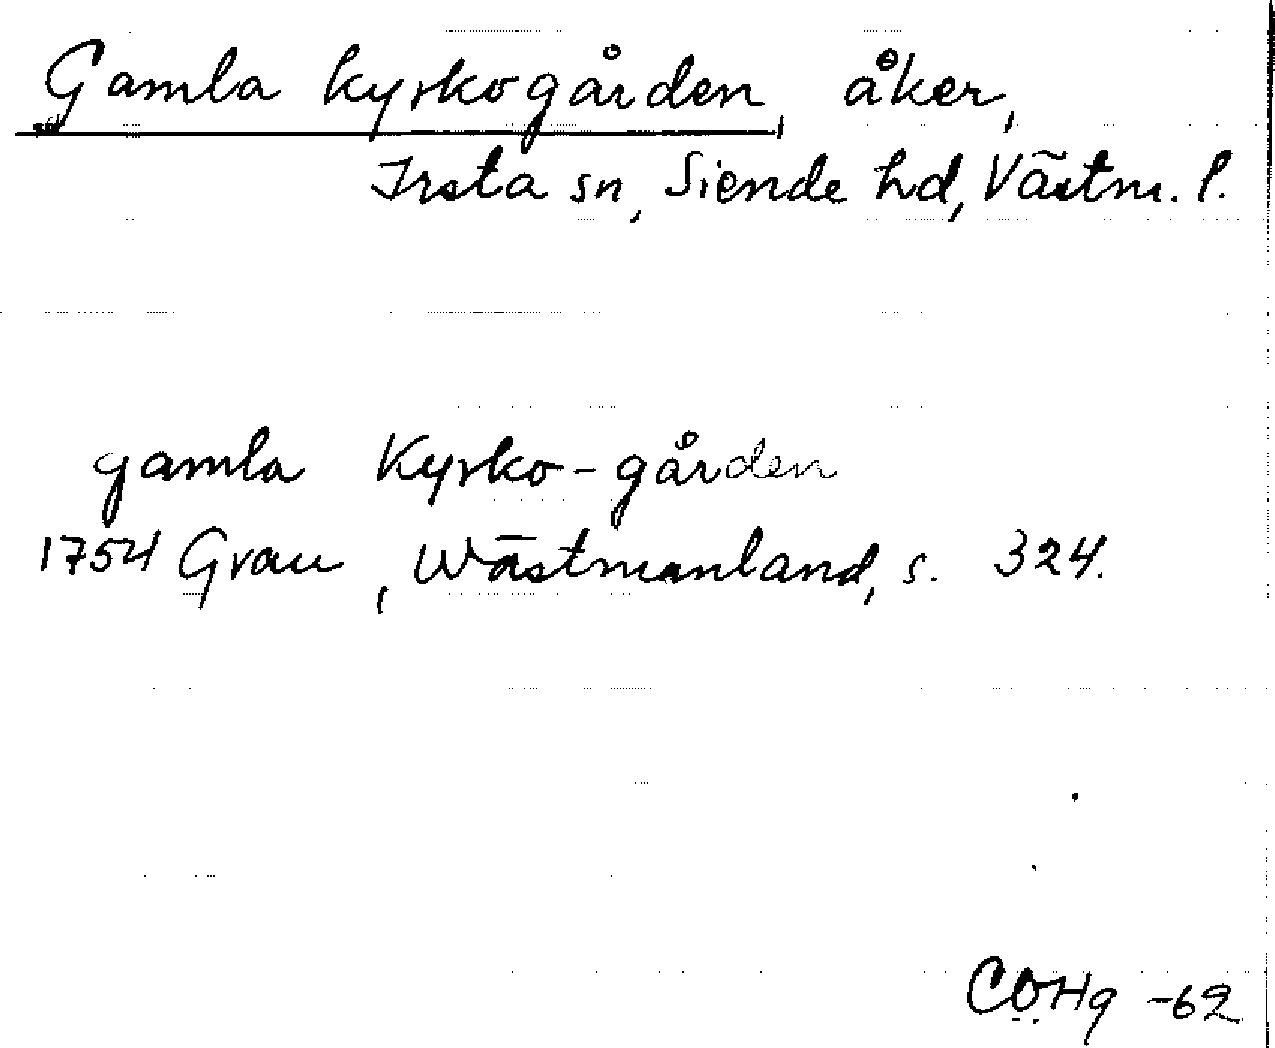 Gamla kyrkogården, åker,
Irsta sn, Siende hd, Västm. l.
gamla Kyrko-gården
1754 Grau, Wästmanland, s. 324.
CÖHg -62